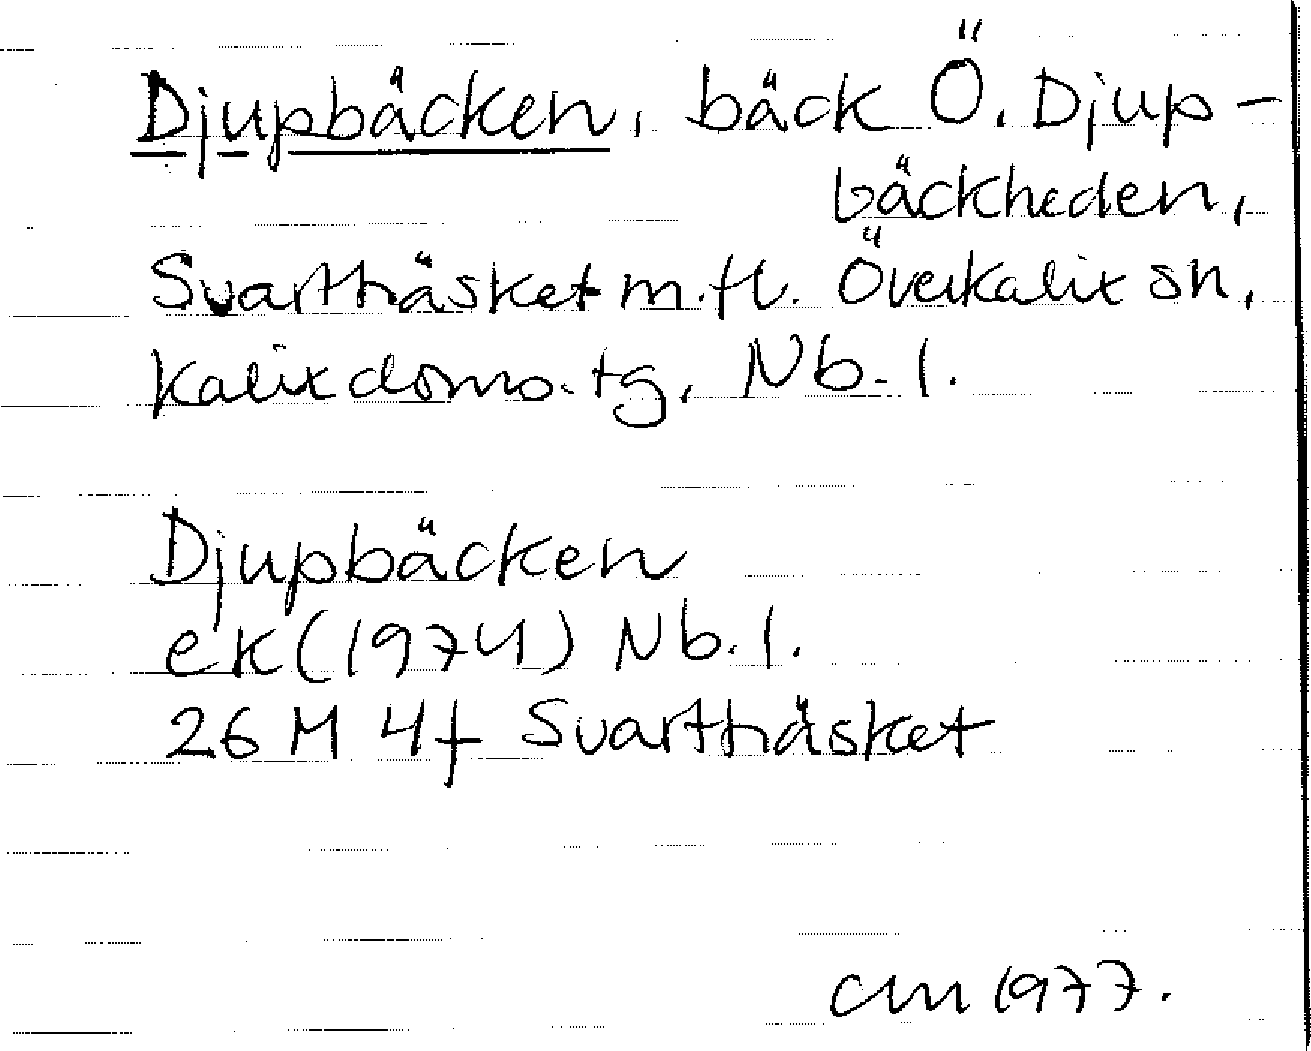 Djupbäcken, bäck Ö. Djup-
bäckheden,
Svartträsket m.fl. Överkalix sn,
Kalix doms. tg, Nb. l.
Djupbäcken
ek (1974) Nb. l.
26 M 4f Svartträsket
1977.